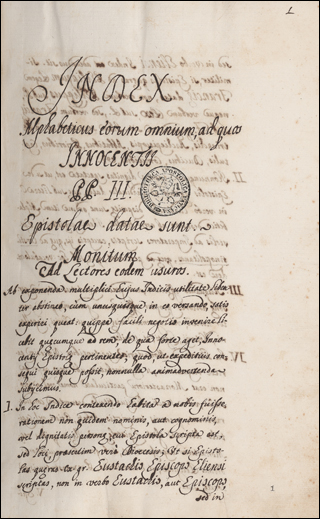 1
INDEX
Alphabeticus eorum omnium, ad quos
INNOCENTII
PP III.
Epistolae datae sunt.
Monitum
Ad Lectores eodem usuros.
Ab exponenda multiplici hujus Indicis utilitate
abstineo, cum unusquisque, in eo versando, satis
experiri queat: quippe facili negotio invenire
ad rem, de qua forte aget, Inno
centij Epistolae pertineat, quod ut expeditius con
sequi quisque possit, nonnulla animadvertenda
subijcimus.
III.
IV.
I. In hoc Indice conficiendo habita a nobis fuisse
rationem non quidem nominis, aut cognominis,
vel dignitatis personae, cui Epistola scripta est,
sed loci praesertim vero Dioecesis, Ut si Episto
las quaeras ex. gr. Eustachio Episcopo Eliensi
scriptas, non in verbo Eustachius, aut Episcopus
sed in
1